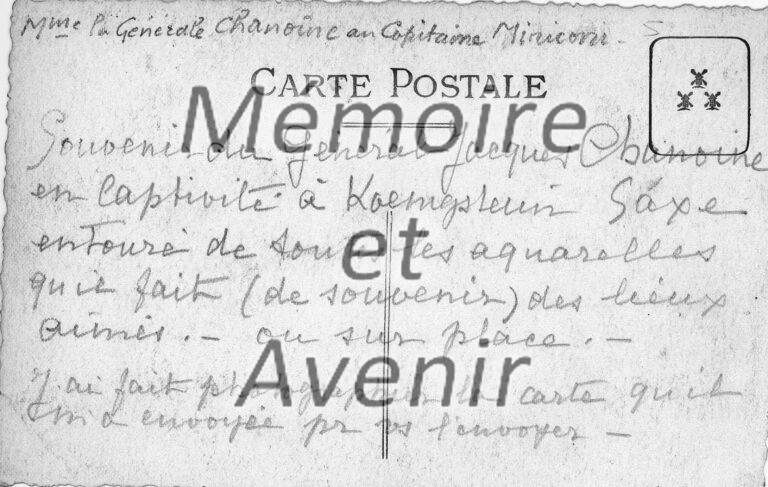 Mme la Générale Chanoine au Capitaine Miricom
CARTE POSTALE
Mémoire
Souvenir du Général Jacques Chanoine
en Captivité à Koenigstein Saxe
et
entouré de toutes les aquarelles
qu'il fait (de souvenir) des lieux
aimés. – ou sur place. –
Avenir
J'ai fait photographier la carte qu'il
m'a envoyée pr vs l'envoyer –